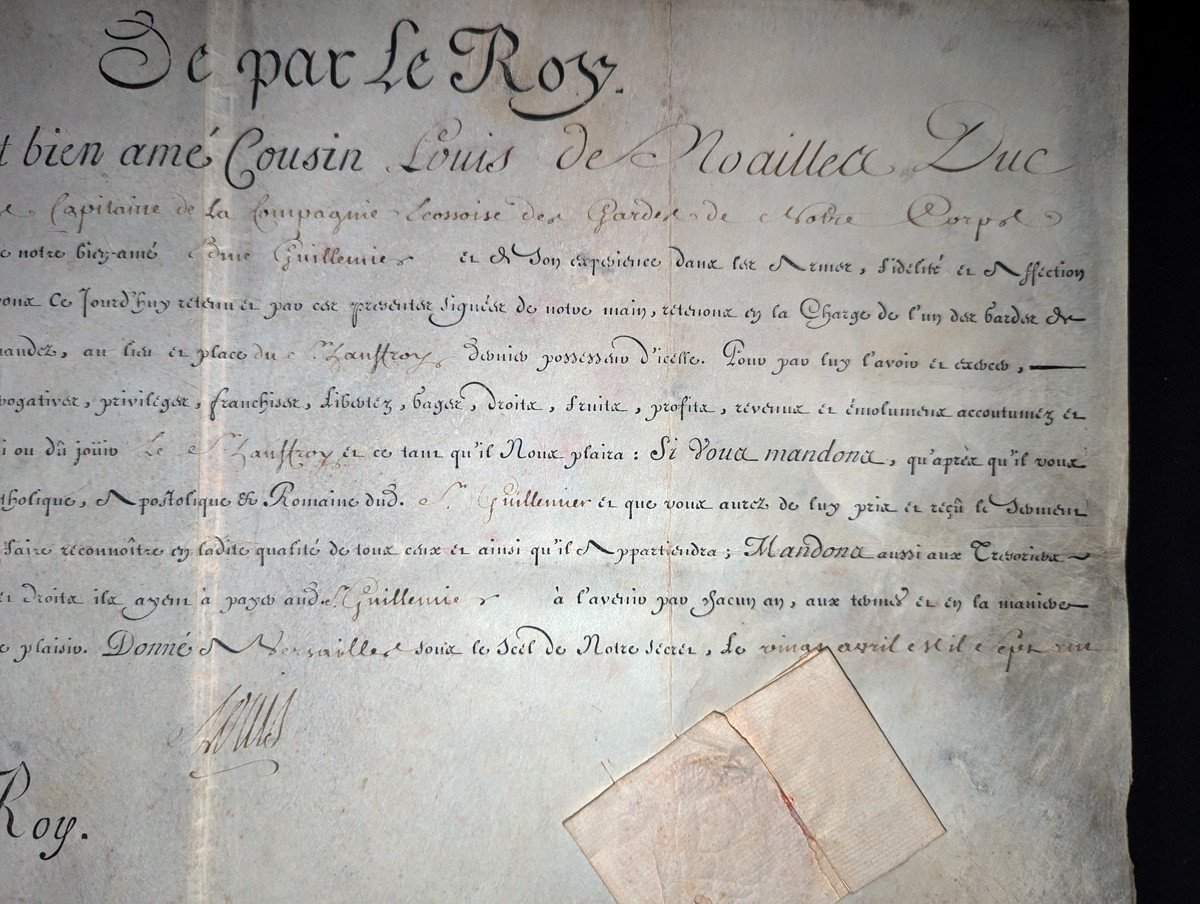 De par Le Roy.
t bien amé Cousin Louis de Noailles Duc
Capitaine de la Compagnie Ecossoise des Gardes de Notre Corps
e notre bien-amé Guillemier et de Son experience dans les Armes, fidelité et Affection
vons Ce Jourd'huy retenu et par ces presentes signées de notre main, retenons en la Charge de l'un des Gardes de
mandez, au lieu et place du Sr. dernier possesseur d'icelle. Pour par luy l'avoir et exercer,
rogatives, privileges, franchises, Libertez, Gages, droits, fruits, profits, revenus et émolumens accoutumez et
i ou dû joüir Le Sr. et ce tant qu'il Nous plaira : Si Vous mandons, qu'après qu'il vous
tholique, Apostolique & Romaine dud. Sr. Guillemier et que vous aurez de luy pris et reçû le Serment
faire réconnoître en ladite qualité de tous ceux et ainsi qu'il Appartiendra ; Mandons aussi aux Tresoriers
et droits ils ayent à payer aud. Sr. Guillemier à l'avenir par chacun an, aux termes et en la maniere
e plaisir. Donné A Versailles sous le Scel de Notre Secret, Le vingt avril Mil Sept
Louis
Roy.